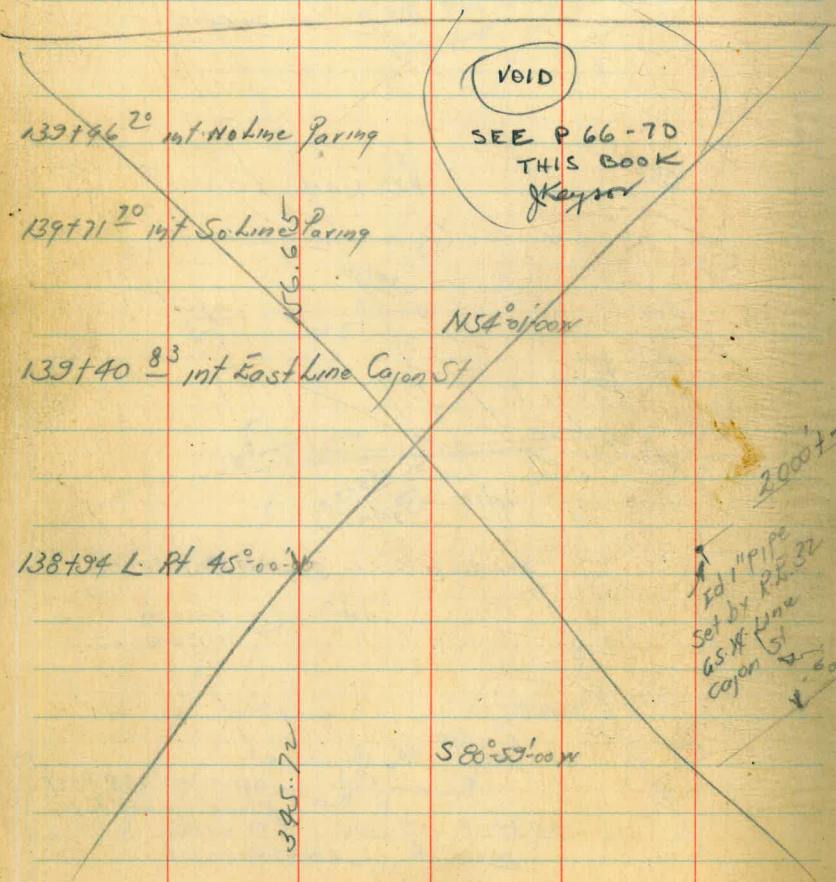 VOID
SEE P 66-70
THIS BOOK
JKeysor
139+96 20 int. No Line Paving
139+71 70 int So. Line Paving
156.65
N54°-01'-00W
139+40 83 int East Line Cajon St
2000'+-
138+94 L. Rt 45°-00'-00
Fd 1" pipe
Set by R.E. 32
as W. Line
Cajon St
60
S 80°-59'-00W
395.72